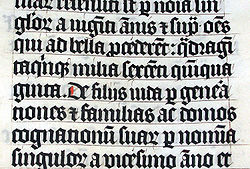 suaꝝ recensiti sūt ꝑ noīa sin
gloꝝ a uigīti ānis ⁊ sup̄ om̄s
qui ad bella ꝓcederēt: q̄dragī
taq̄nqꝫ milia sexcēti quīqua
ginta. De filiis iuda ꝑ genēa
tiones ⁊ familias ac domos
cognationū suaꝝ ꝑ nomīa
singuloꝝ a vicesimo āno et